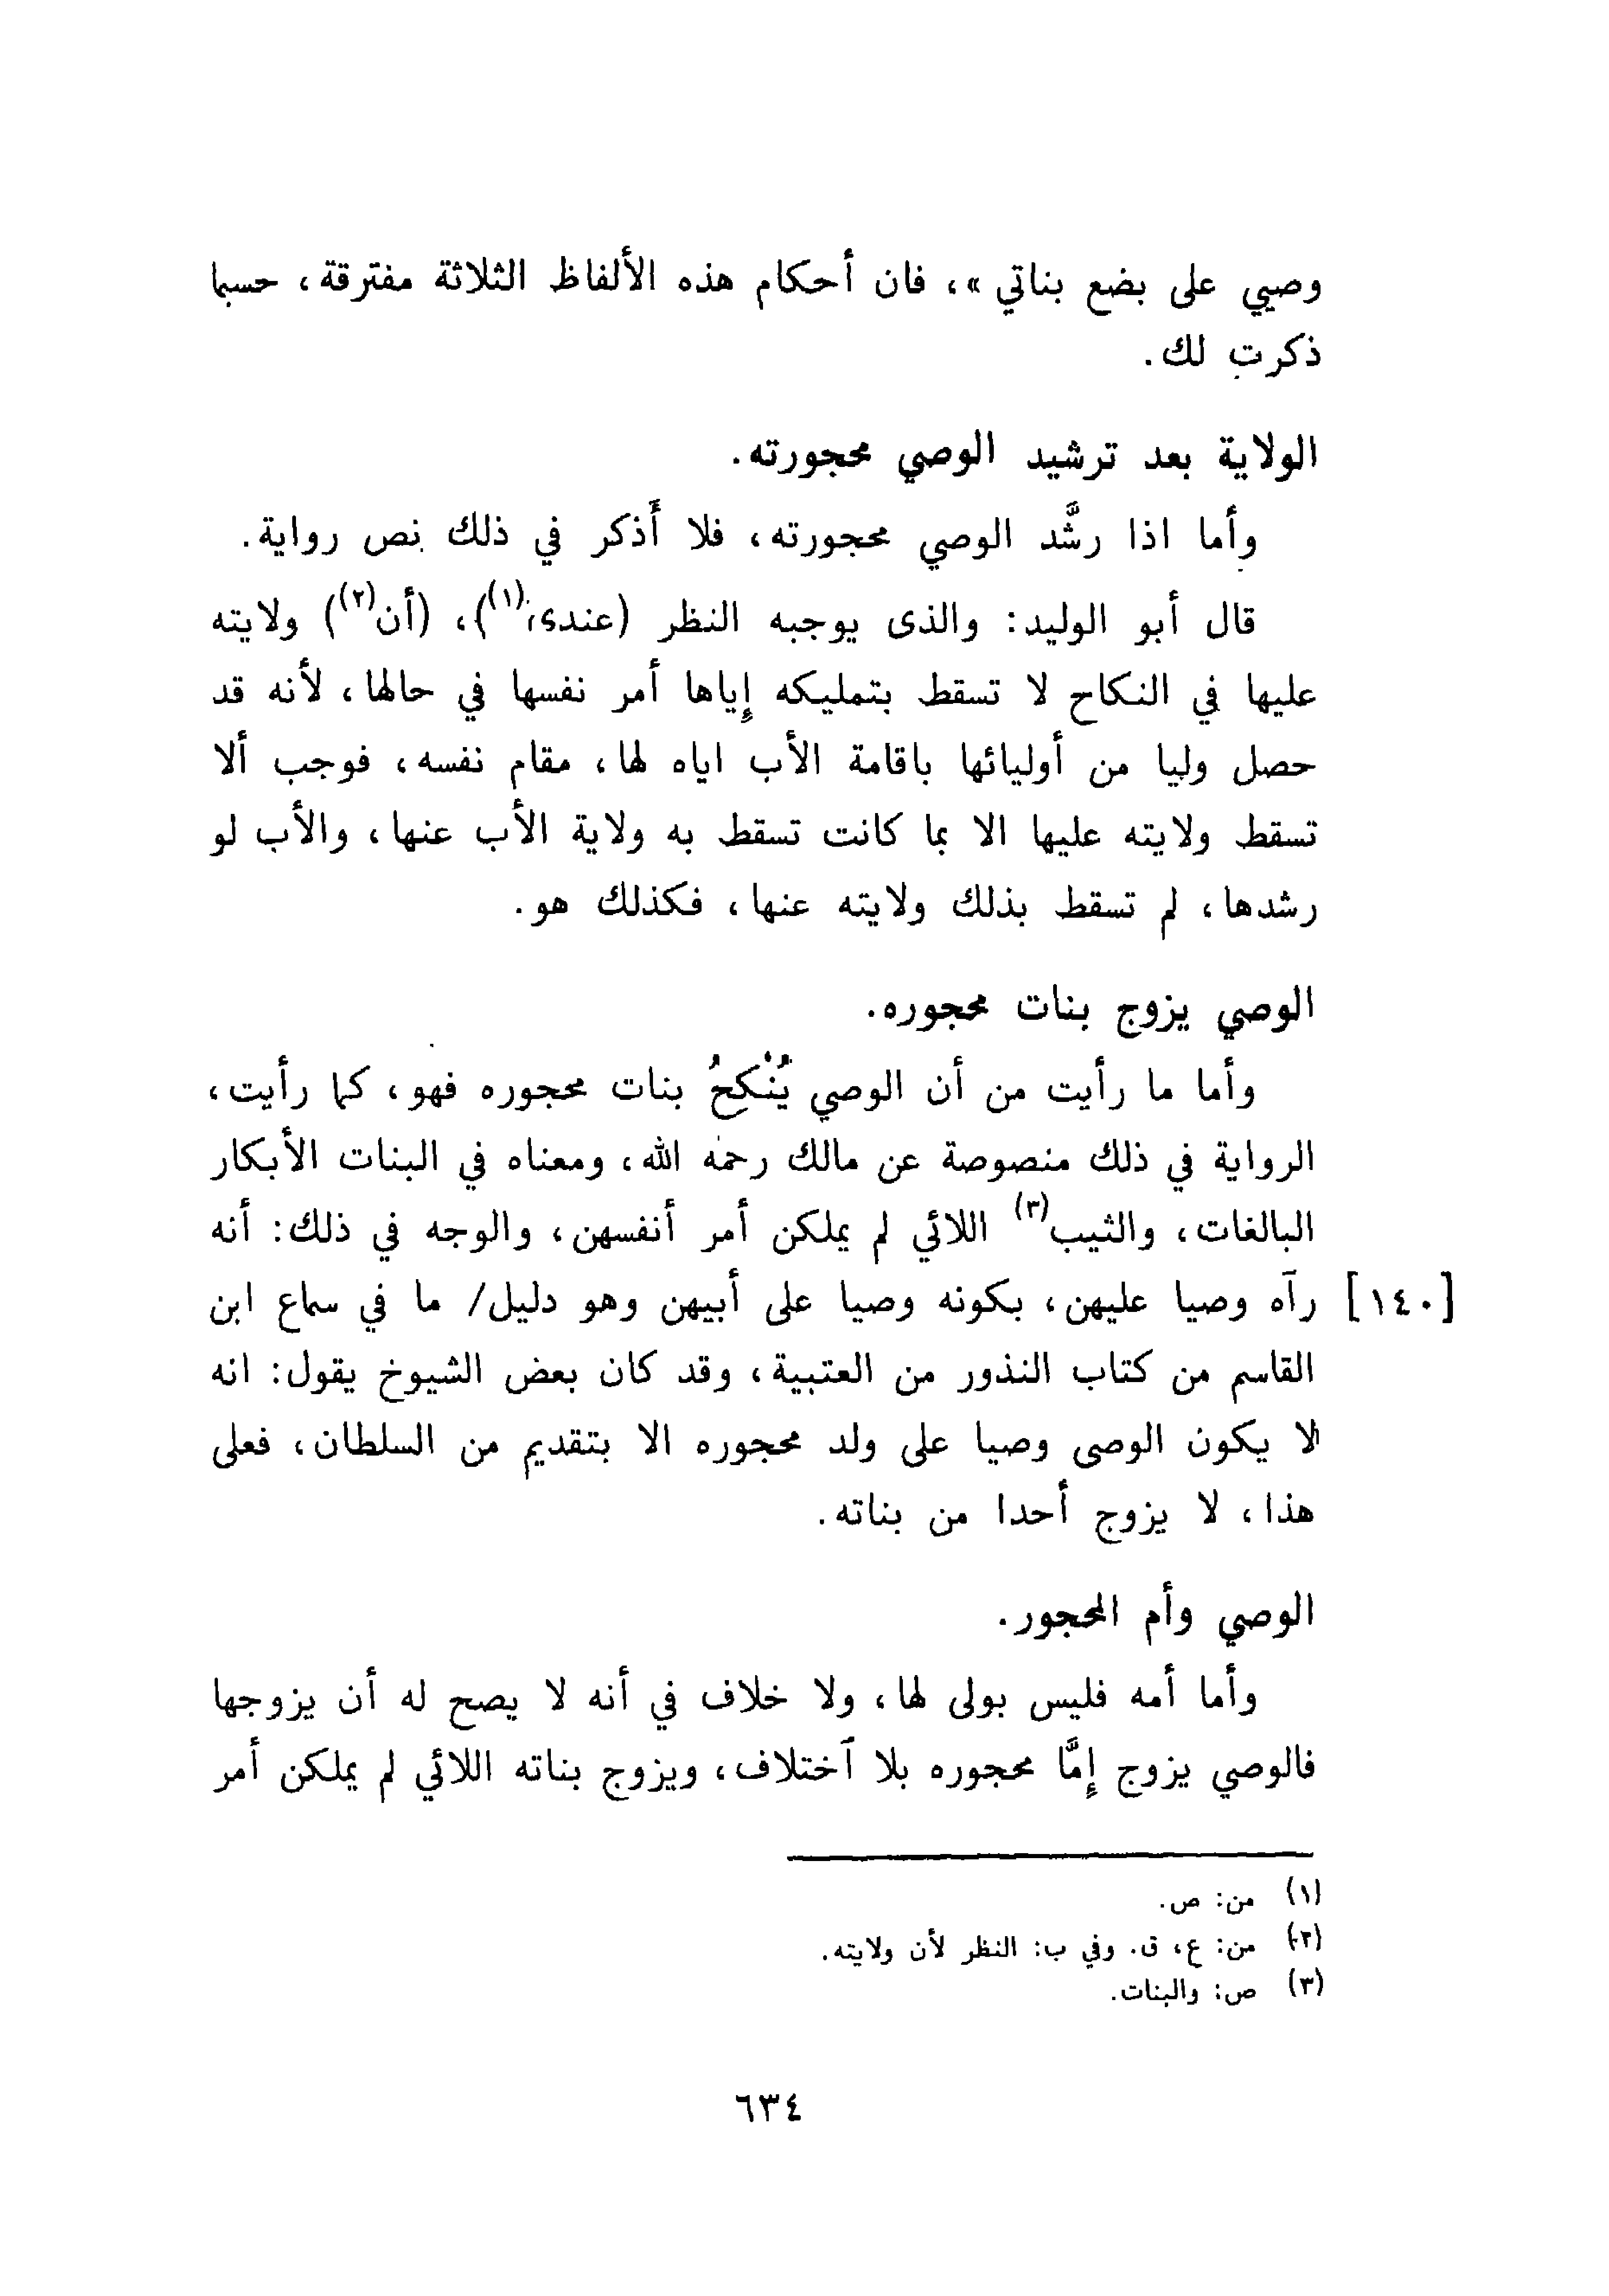 وصيي على بضع بناتي »، فان أحكام هذه الألفاظ الثلاثة مفترقة، حسبما
ذكرت لك.
الولاية بعد ترشيد الوصي محجورته.
وأما اذا رشَّد الوصي محجورته، فلا أَذكر في ذلك نص رواية.
قال أبو الوليد: والذى يوجبه النظر (عندى(١))، (أن(٢)) ولايته
عليها في النكاح لا تسقط بتمليكه إياها أمر نفسها في حالها، لأنه قد
حصل وليا من أوليائها باقامة الأب اياه لها، مقام نفسه، فوجب ألا
تسقط ولايته عليها الا بما كانت تسقط به ولاية الأب عنها، والأب لو
رشدها، لم تسقط بذلك ولايته عنها، فكذلك هو.
الوصي يزوج بنات محجوره.
وأما ما رأيت من أن الوصي يُنْكِحُ بنات محجوره فهو، كما رأيت،
الرواية في ذلك منصوصة عن مالك رحمه الله، ومعناه في البنات الأبكار
البالغات، والثيب(٣) اللائي لم يملكن أمر أنفسهن، والوجه في ذلك: أنه
[١٤٠] رآه وصيا عليهن، بكونه وصيا على أبيهن وهو دليل/ ما في سماع ابن
القاسم من كتاب النذور من العتبية، وقد كان بعض الشيوخ يقول: انه
لا يكون الوصى وصيا على ولد محجوره الا بتقديم من السلطان، فعلى
هذا، لا يزوج أحدا من بناته.
الوصي وأم المحجور.
وأما أمه فليس بولى لها، ولا خلاف في أنه لا يصح له أن يزوجها
فالوصي يزوج إمَّا محجوره بلا آختلاف، ويزوج بناته اللائي لم يملكن أمر
(١) من: ص.
(٢) من: ع، ق. وفي ب: النظر لأن ولايته.
(٣) ص: والبنات.
٦٣٤